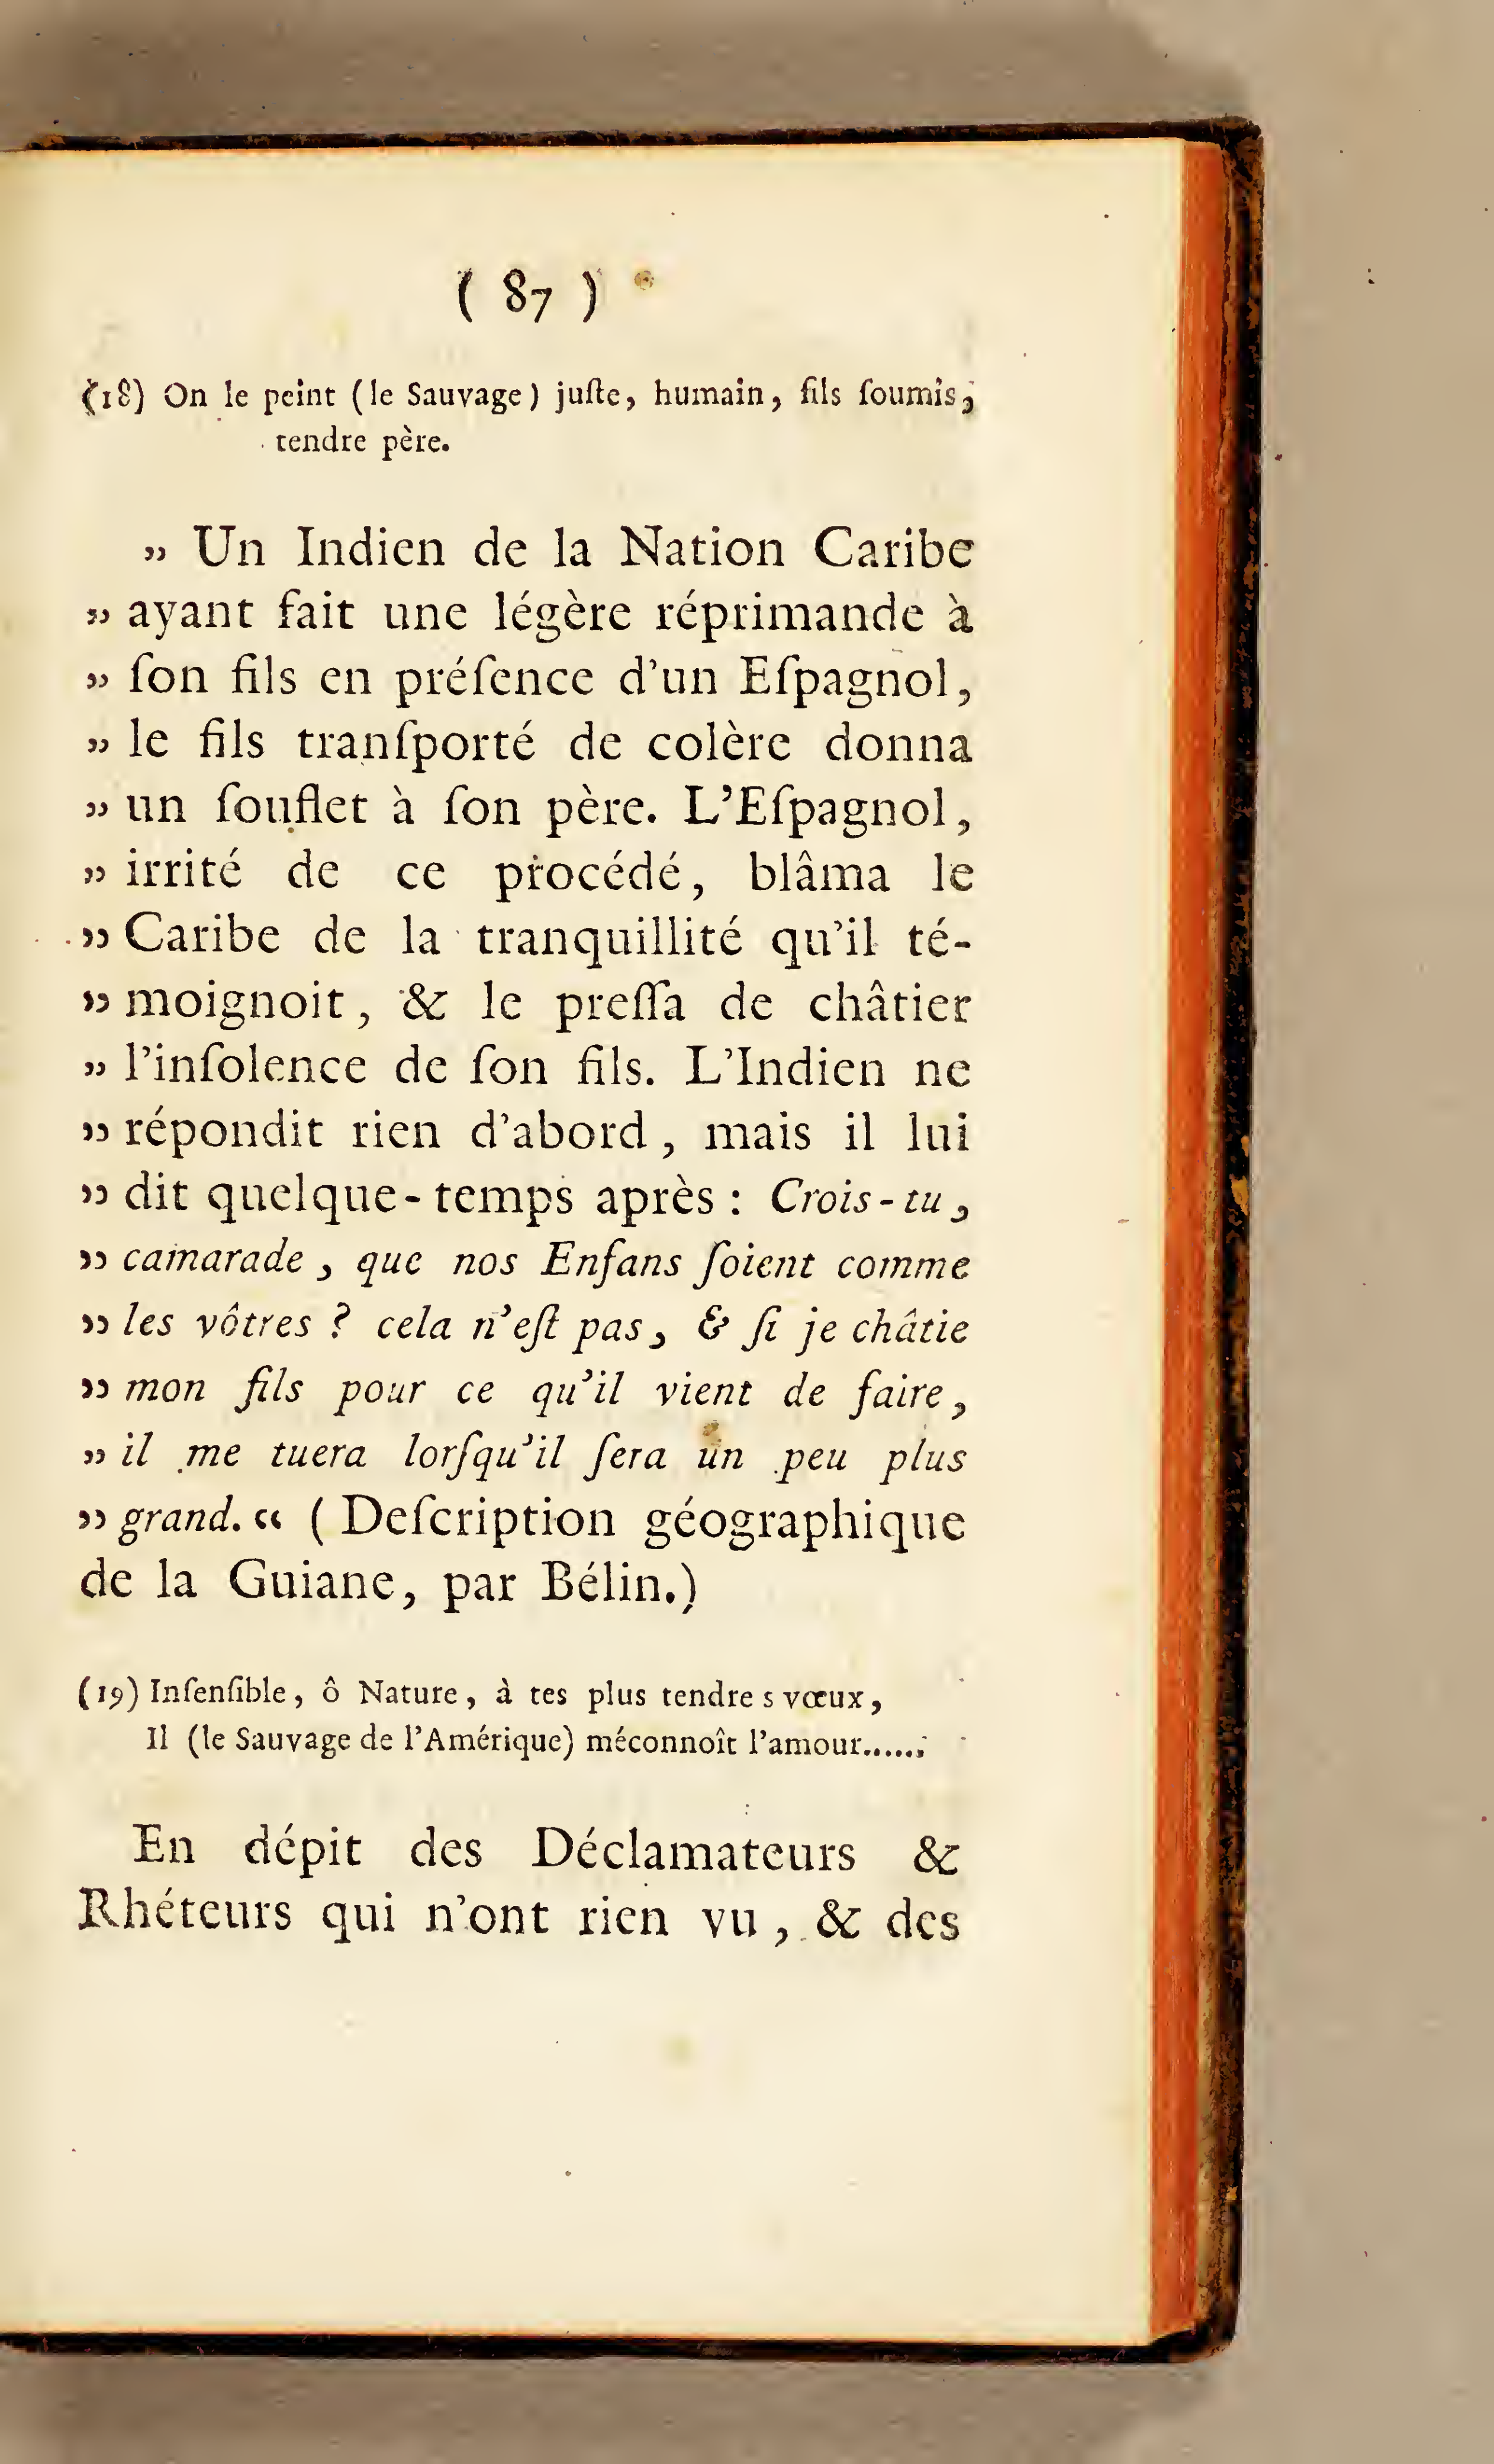 ( 87 )
(18) On le peint (le Sauvage) juſte, humain, fils ſoumis,
tendre père.
„ Un Indien de la Nation Caribe
„ ayant fait une légère réprimande à
„ ſon fils en préſence d'un Eſpagnol,
„ le fils tranſporté de colère donna
„ un ſouflet à ſon père. L'Eſpagnol,
„ irrité de ce procédé, blâma le
„ Caribe de la tranquillité qu'il té-
„ moignoit, & le preſſa de châtier
„ l'inſolence de ſon fils. L'Indien ne
„ répondit rien d'abord, mais il lui
„ dit quelque-temps après : Crois-tu,
„ camarade, que nos Enfans ſoient comme
„ les vôtres ? cela n'eſt pas, & ſi je châtie
„ mon fils pour ce qu'il vient de faire,
„ il me tuera lorſqu'il ſera un peu plus
„ grand. “ ( Deſcription géographique
de la Guiane, par Bélin.)
(19) Inſenſible, ô Nature, à tes plus tendre s vœux,
Il (le Sauvage de l'Amérique) méconnoît l'amour......
En dépit des Déclamateurs &
Rhéteurs qui n'ont rien vu, & des